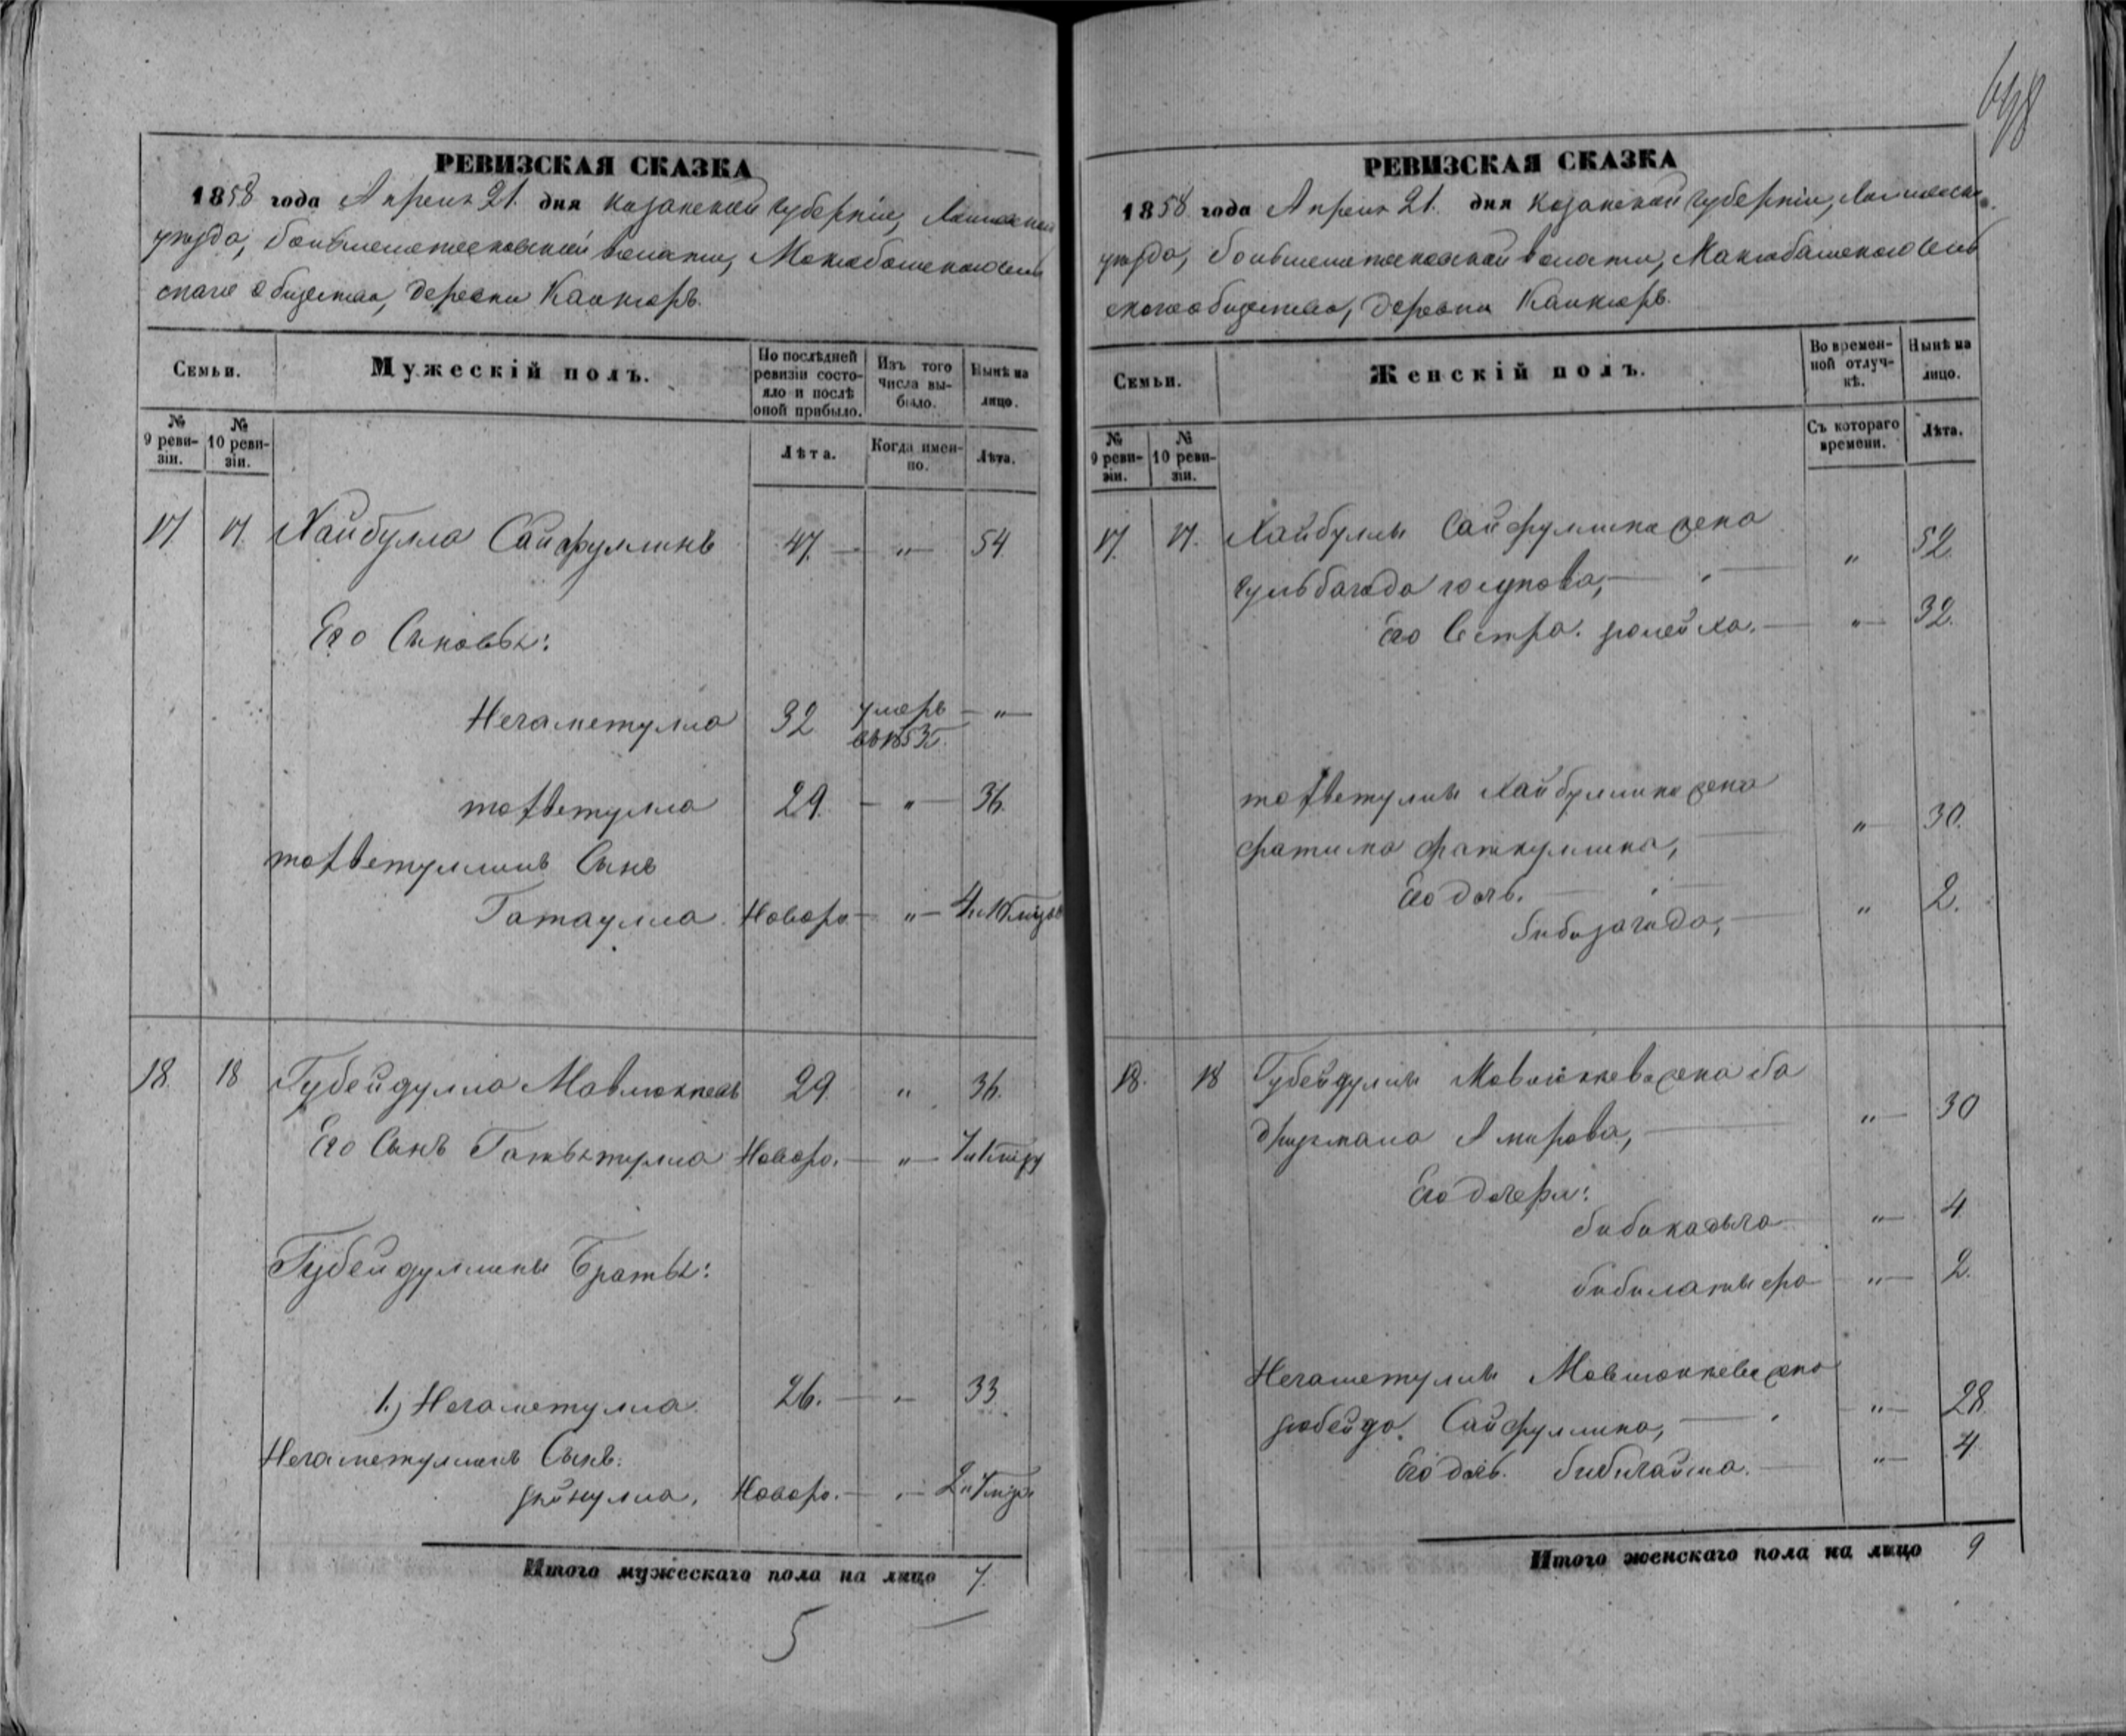 РЕВИЗСКАЯ СКАЗКА
1858 года Апреля 21. дня Казанской губернии,
уезда, волости,
скаго общества, деревни Каинюръ.
Семьи.
Мужескій полъ.
По послѣдней ревизіи состояло и послѣ оной прибыло.
Изъ того числа выбыло.
Нынѣ на лицо.
№ 9 ревизіи.
№ 10 ревизіи.
Лѣта.
Когда именно.
Лѣта.
17 17. Хайбулла Сайфуллинъ 47. — „ — 54
Его Сыновья:
Негаметулла 32 умеръ — „ —
въ 1853
тофветулла 29. — „ — 36.
тофветуллинъ Сынъ
Гатаулла. Новоро — „ — 4
18. 18 Губейдулла Мавлюкеевъ 29. „ 36.
Его Сынъ Новоро. — „ —
Губейдуллины Братья:
1.) Негаметулла. 26. — „ — 33
Негаметуллинъ Сынъ:
зейнулла, Новоро. — „ — 2
Итого мужескаго пола на лицо 7.
5
698
РЕВИЗСКАЯ СКАЗКА
1858 года Апреля 21. дня Казанской губернии,
уезда, волости,
скаго общества, деревни Каинюръ.
Семьи.
Женскій полъ.
Во временной отлучкѣ.
Нынѣ на лицо.
№ 9 ревизіи.
№ 10 ревизіи.
Съ котораго времени.
Лѣта.
17. 17. Хайбуллы Сайфуллина жена
юсупова, — „ 52.
Его Сестра. — „ — 32.
тофветуллы Хайбуллина жена
фатима фаткуллина, — „ 30.
Его дочь. —
бибизагида, — „ 2.
18. 18 Губейдуллы Мавлюкеева жена ба
дрижамала Амирова, — „ — 30
Его дочери:
„ — 4
бибилатыфа „ — 2.
Негаметуллы Мавлюкеева жена
зюбейда. Сайфуллина, — „ — 28.
Его дочь. — „ — 4.
Итого женскаго пола на лицо 9